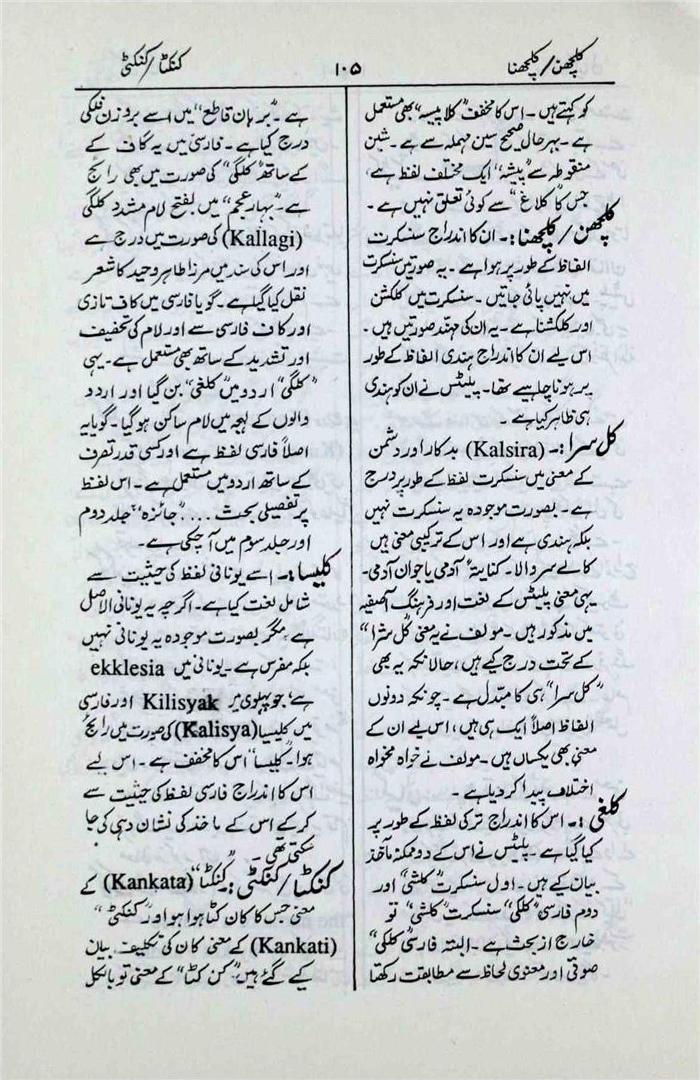 کلچھن/کلچھنا
۱۰۵
کنکٹا/کنکٹی
کو کہتے ہیں۔ اس کا مخفف "کلاپیسہ" بھی مستعمل
ہے۔ بہرحال صحیح سین مہملہ سے ہے۔ شین
منقوطہ سے "پیشہ" ایک مختلف لفظ ہے،
جس کا "کلاغ" سے کوئی تعلق نہیں ہے۔
کلچھن/کلچھنا:۔ ان کا اندراج سنسکرت
الفاظ کے طور پر ہوا ہے۔ یہ صورتیں سنسکرت
میں نہیں پائی جاتیں۔ سنسکرت میں کلکشن
اور کلکشنا ہے۔ یہ ان کی مہند صورتیں ہیں۔
اس لیے ان کا اندراج ہندی الفاظ کے طور
پر ہونا چاہیے تھا۔ پلیٹس نے ان کو ہندی
ہی ظاہر کیا ہے۔
کل سرا:۔ (Kalsira) بدکار اور دشمن
کے معنی میں سنسکرت لفظ کے طور پر درج
ہے۔ بصورت موجودہ یہ سنسکرت نہیں
بلکہ ہندی ہے اور اس کے ترکیبی معنی ہیں
کالے سر والا۔ کنایتہً آدمی یا جوان آدمی۔
یہی معنی پلیٹس کے لغت اور فرہنگ آصفیہ
میں مذکور ہیں۔ مولف نے یہ معنی "کل سرا"
کے تحت درج کیے ہیں، حالانکہ یہ بھی
"کل سرا" ہی کا مبدّل ہے۔ چونکہ دونوں
الفاظ اصلاً ایک ہی ہیں، اس لیے ان کے
معنی بھی یکساں ہیں۔ مولف نے خواہ مخواہ
اختلاف پیدا کر دیا ہے۔
کلغی:۔ اس کا اندراج ترکی لفظ کے طور پر
کیا گیا ہے۔ پلیٹس نے اس کے دو ممکنہ مآخذ
بیان کیے ہیں۔ اول سنسکرت "کلشی" اور
دوم فارسی "کلکی" سنسکرت "کلشی" تو
خارج از بحث ہے۔ البتہ فارسی "کلکی"
صوتی اور معنوی لحاظ سے مطابقت رکھتا
ہے۔ "برہان قاطع" میں اسے بروزن فلکی
درج کیا ہے۔ فارسی میں یہ گاف کے
کے ساتھ "کلگی" کی صورت میں بھی رائج
ہے۔ "بہار عجم" میں بفتح لام مشدد کلگی
(Kallagi) کی صورت میں درج ہے
اور اس کی سند میں مرزا طاہر وحید کا شعر
نقل کیا گیا ہے۔ گویا فارسی میں کاف تازی
اور کاف فارسی سے اور لام کی تخفیف
اور تشدید کے ساتھ بھی مستعمل ہے۔ یہی
"کلگی" اردو میں "کلغی" بن گیا اور اردو
والوں کے لہجہ میں لام ساکن ہو گیا۔ گویا یہ
اصلاً فارسی لفظ ہے اور کسی قدر تصرف
کے ساتھ اردو میں مستعمل ہے۔ اس لفظ
پر تفصیلی بحث .... "جائزہ" جلد دوم
اور جلد سوم میں آ چکی ہے۔
کلیسا:۔ اسے یونانی لفظ کی حیثیت سے
شامل لغت کیا ہے۔ اگرچہ یہ یونانی الاصل
ہے مگر بصورت موجودہ یہ یونانی نہیں
بلکہ مفرس ہے۔ یونانی میں ekklesia
ہے، جو پہلوی میں Kilisyak اور فارسی
میں کلیسیا (Kalisya) کی صورت میں رائج
ہوا۔ "کلیسا" اس کا مخفف ہے۔ اس لیے
اس کا اندراج فارسی لفظ کی حیثیت سے
کر کے اس کے ماخذ کی نشان دہی کی جا
سکتی تھی۔
کنکٹا/کنکٹی:۔ "کنکٹا" (Kankata) کے
معنی جس کا کان کٹا ہوا ہو اور "کنکٹی"
(Kankati) کے معنی کان کی تکلیف بیان
کیے گئے ہیں۔ "کن کٹا" کے معنی تو بالکل